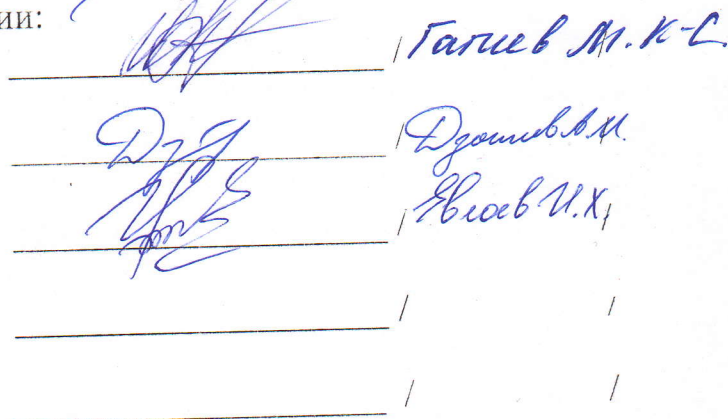 ии:
/ Гатиев М. К-С.
/ Дзошев А.М. /
/ Евлоев И.Х. /
/ /
/ /